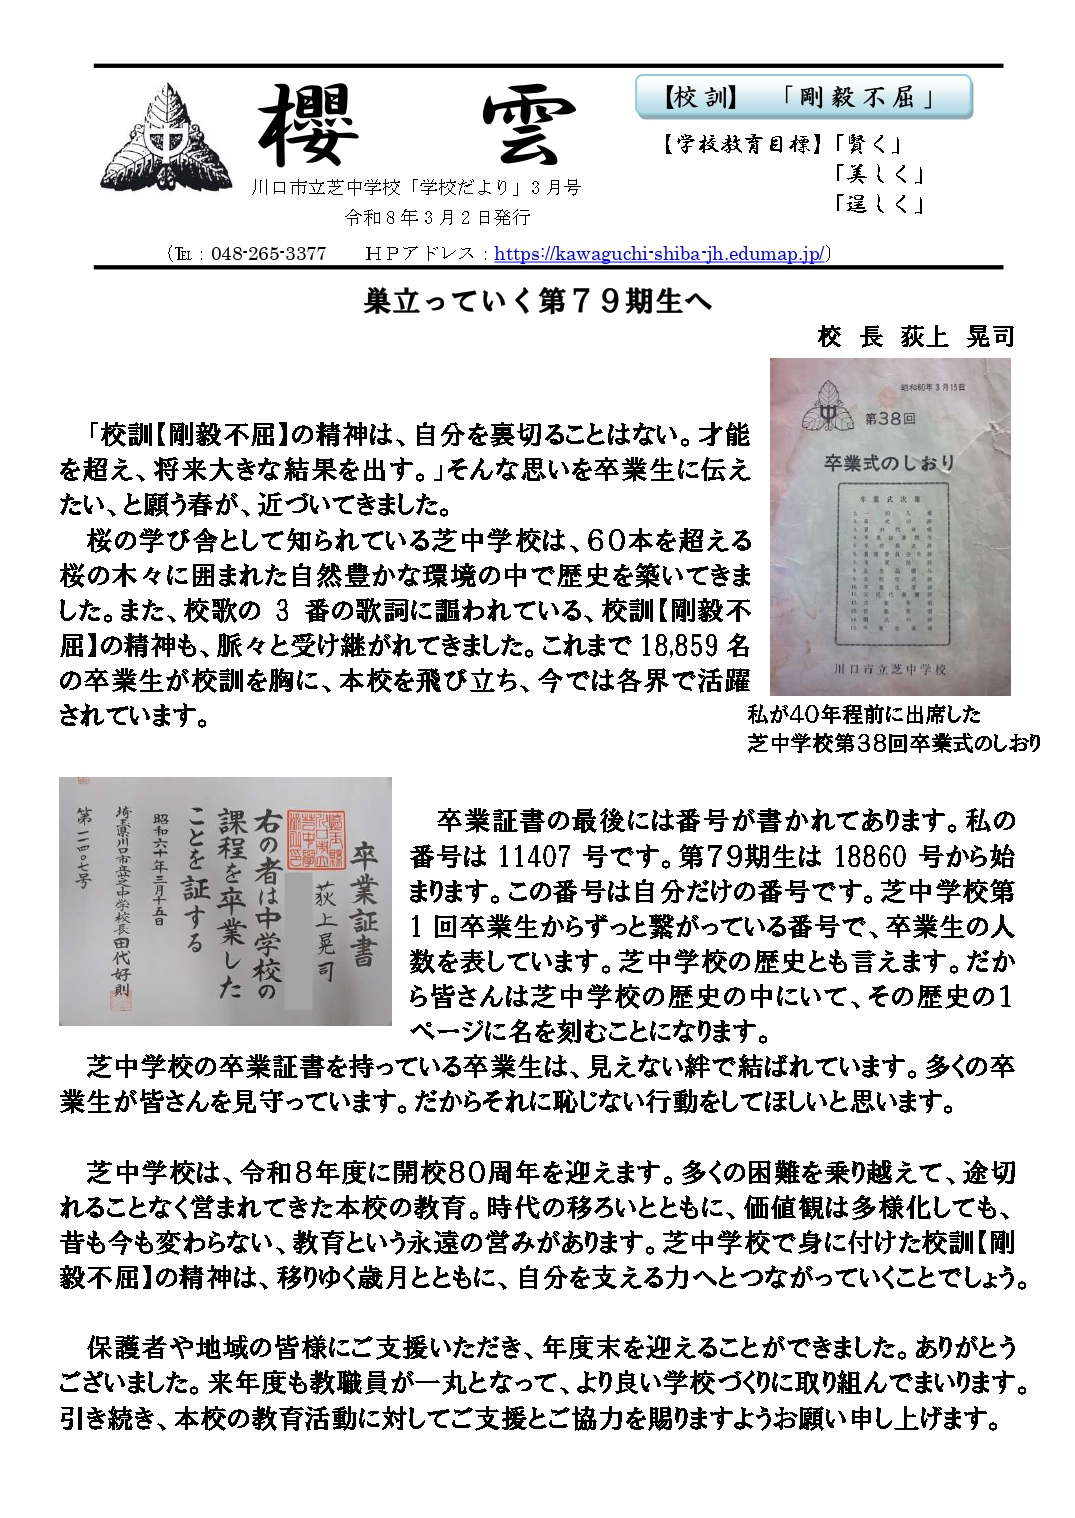 櫻雲
川口市立芝中学校「学校だより」３月号
令和８年３月２日発行
【校訓】　「剛毅不屈」
【学校教育目標】「賢く」
「美しく」
「逞しく」
（℡：048-265-3377　　ＨＰアドレス：https://kawaguchi-shiba-jh.edumap.jp/）
巣立っていく第７９期生へ
校　長　荻上　晃司
「校訓【剛毅不屈】の精神は、自分を裏切ることはない。才能
を超え、将来大きな結果を出す。」そんな思いを卒業生に伝え
たい、と願う春が、近づいてきました。
桜の学び舎として知られている芝中学校は、６０本を超える
桜の木々に囲まれた自然豊かな環境の中で歴史を築いてきま
した。また、校歌の 3 番の歌詞に謳われている、校訓【剛毅不
屈】の精神も、脈々と受け継がれてきました。これまで 18,859 名
の卒業生が校訓を胸に、本校を飛び立ち、今では各界で活躍
されています。
昭和60年３月15日
第38回
卒業式のしおり
卒業式次第
川口市立芝中学校
私が４０年程前に出席した
芝中学校第３８回卒業式のしおり
卒業証書
荻上晃司
右の者は中学校の
課程を卒業した
ことを証する
昭和六十年三月十五日
埼玉県川口市立芝中学校長田代好則
第一一四〇七号
卒業証書の最後には番号が書かれてあります。私の
番号は 11407 号です。第７９期生は 18860 号から始
まります。この番号は自分だけの番号です。芝中学校第
1 回卒業生からずっと繋がっている番号で、卒業生の人
数を表しています。芝中学校の歴史とも言えます。だか
ら皆さんは芝中学校の歴史の中にいて、その歴史の１
ページに名を刻むことになります。
芝中学校の卒業証書を持っている卒業生は、見えない絆で結ばれています。多くの卒
業生が皆さんを見守っています。だからそれに恥じない行動をしてほしいと思います。
芝中学校は、令和８年度に開校８０周年を迎えます。多くの困難を乗り越えて、途切
れることなく営まれてきた本校の教育。時代の移ろいとともに、価値観は多様化しても、
昔も今も変わらない、教育という永遠の営みがあります。芝中学校で身に付けた校訓【剛
毅不屈】の精神は、移りゆく歳月とともに、自分を支える力へとつながっていくことでしょう。
保護者や地域の皆様にご支援いただき、年度末を迎えることができました。ありがとう
ございました。来年度も教職員が一丸となって、より良い学校づくりに取り組んでまいります。
引き続き、本校の教育活動に対してご支援とご協力を賜りますようお願い申し上げます。